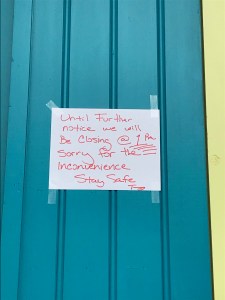 Until Further
notice we will
Be Closing @ 9 Pm
Sorry for the
Inconvenience
Stay Safe